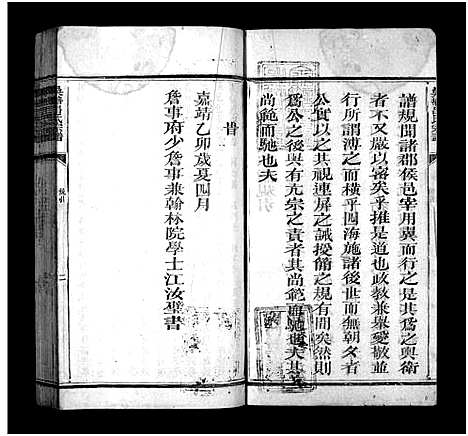 譜規聞諸郡侯邑宰用冀而行之是其爲之與衛
者不又嚴以密矣乎推是道也政教兼舉愛敬並
行所謂溥之而橫乎四海施諸後世而無朝夕者
公實以之其視連屏之誡擬簡之規有間矣然則
爲公之後與有亢宗之責者其尚範而馳也夫其
尚範而馳也夫
旹
嘉靖乙卯歲夏四月
詹事府少詹事兼翰林院學士江汝璧書
二